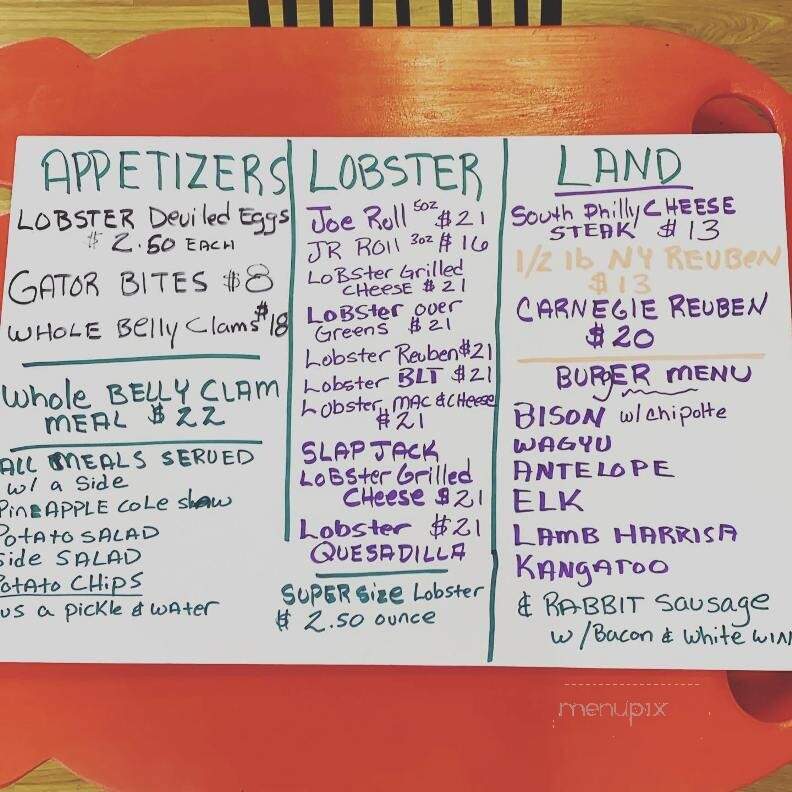 APPETIZERS
LOBSTER Deviled Eggs
$ 2.50 EACH
GATOR BITES $8
WHOLE Belly Clams $18
Whole BELLY CLAM
MEAL $22
ALL MEALS SERVED
w/ a Side
PINEAPPLE Cole slaw
POTATO SALAD
Side SALAD
POTATO CHIPS
us a pickle & water
LOBSTER
Joe Roll 5oz $21
JR ROll 3oz $16
LoBSter Grilled
CHEESE $21
LoBSter over
Greens $21
Lobster Reuben $21
Lobster BLT $21
Lobster MAC & CHeese
$21
SLAP JACK
LoBSter Grilled
CHeese $21
Lobster $21
QUESADILLA
SUPER Size Lobster
$ 2.50 ounce
LAND
South Philly CHEESE
STEAK $13
1/2 lb NY REUBEN
$13
CARNEGIE REUBEN
$20
BURgER MENU
BISON w/chipolte
WAGYU
ANTELOPE
ELK
LAMB HARRISA
KANgAROO
& RABBIT Sausage
w/Bacon & White WIN
menupix